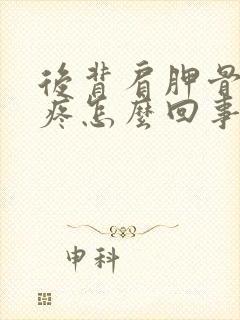 後背肩胛骨
疼怎麼回事
申科